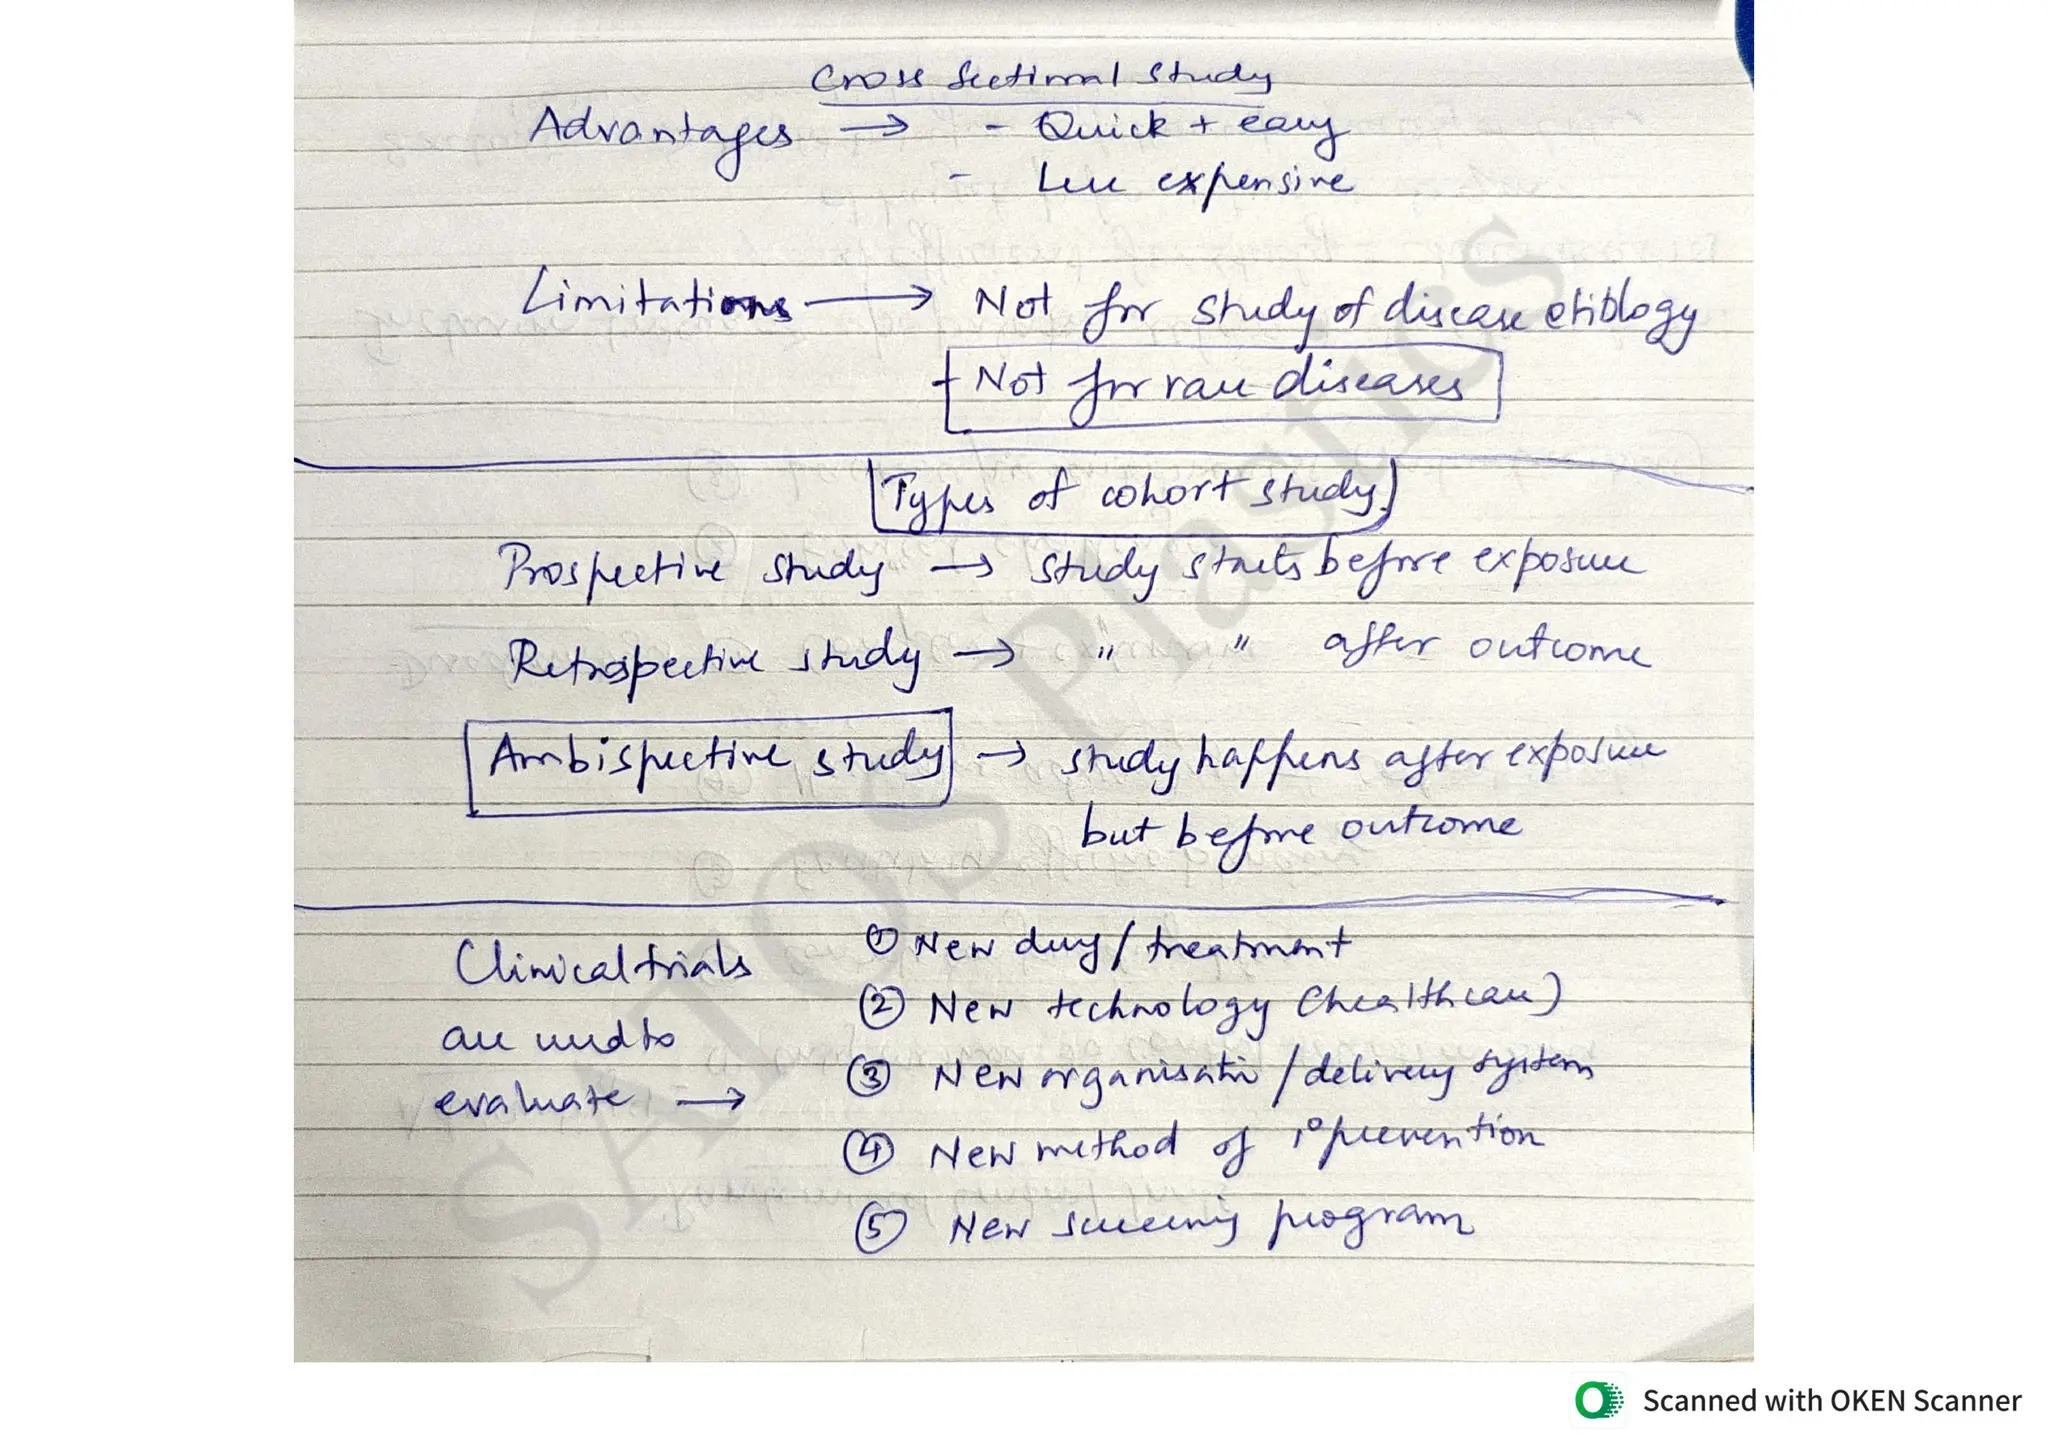 Cross Sectional Study
Advantages → - Quick + easy
- Less expensive
Limitations → Not for study of disease etiology
+ Not for rare diseases
Types of cohort study
Prospective study → study starts before exposure
Retrospective study → " " after outcome
Ambispective study → study happens after exposure
but before outcome
Clinical trials
are used to
evaluate →
① New drug / treatment
② New technology (healthcare)
③ New organisation / delivery system
④ New method of 1° prevention
⑤ New screening program
SAIOS Plastics
Scanned with OKEN Scanner